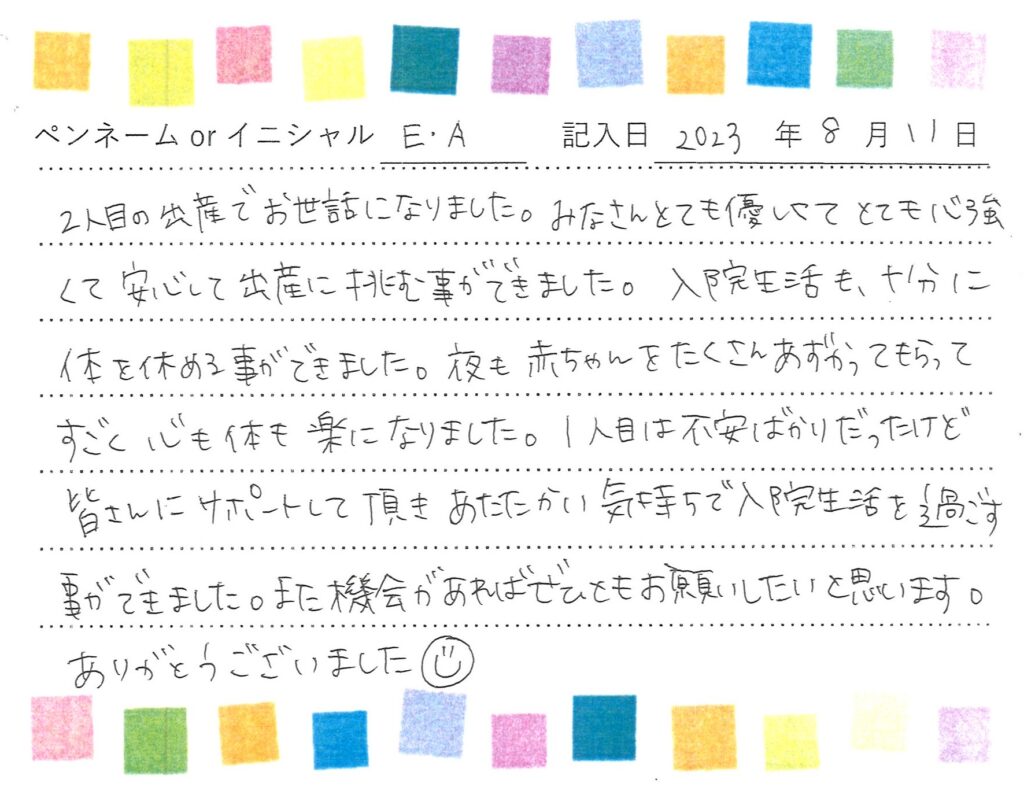 ペンネーム or イニシャル E・A 記入日 2023 年 8 月 11 日
2人目の出産でお世話になりました。みなさんとても優しくて とても心強
くて 安心して 出産に 挑む事ができました。 入院生活も、十分に
体を休める事ができました。夜も 赤ちゃんをたくさんあずかってもらって
すごく 心も体も 楽に なりました。1人目は不安ばかりだったけど
皆さんに サポートして 頂き あたたかい 気持ちで入院生活を過ごす
事ができました。また機会があればぜひともお願いしたいと思います。
ありがとうございました☺